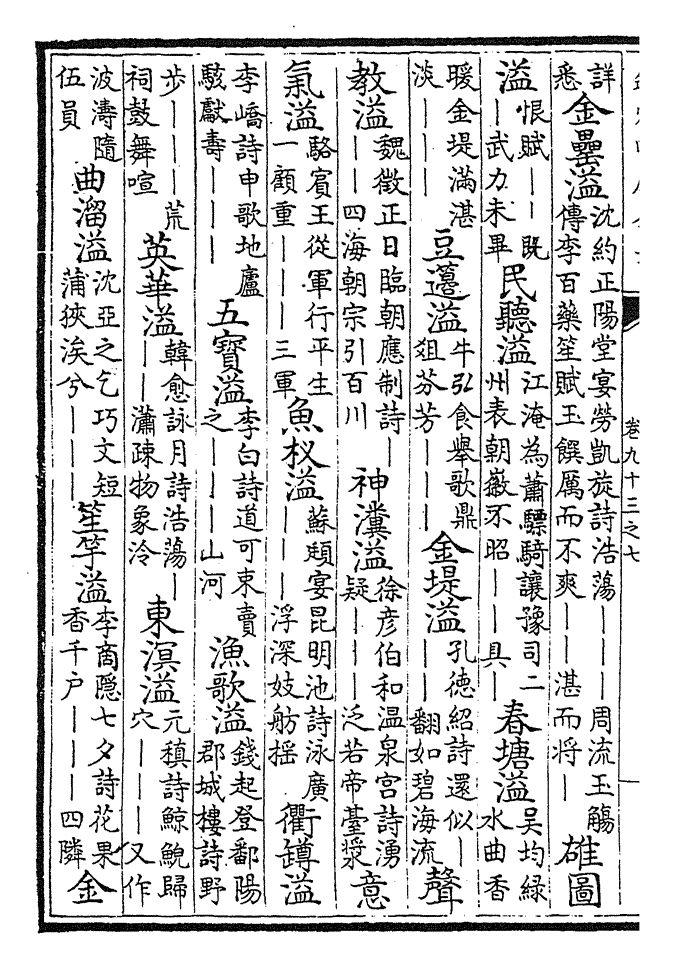 詳悉金罍溢沈約正陽堂宴勞凱旋詩浩蕩———周流玉觴傳李百藥笙賦玉饌厲而不爽———湛而將—雄圖
溢恨賦——既——武力未畢民聽溢江淹為蕭驃騎讓豫司二州表朝徽不昭——具—春塘溢吳均綠水曲香
暖金堤滿湛淡———豆籩溢牛弘食舉歌鼎俎芬芳———金堤溢孔德紹詩還似———翻如碧海流聲
教溢魏徵正日臨朝應制詩———四海朝宗引百川神瀵溢徐彥伯和温泉宮詩湧疑———泛若帝臺漿意
氣溢駱賓王從軍行平生一顧重———三軍魚杈溢蘇頲宴昆明池詩泳廣———浮深妓舫摇衢鐏溢
李嶠詩申歌地廬駭獻壽———五寶溢李白詩道可束賣之———山河漁歌溢錢起登鄱陽郡城樓詩野
步————荒祠鼓舞喧英華溢韓愈詠月詩浩蕩———瀟疎物象泠東溟溢元稹詩鯨鯢歸穴———又作
波濤隨伍員曲溜溢沈亞之乞巧文短蒲狹涘兮———笙竽溢李商隐七夕詩花果香千户———四隣金
卷九十三之七